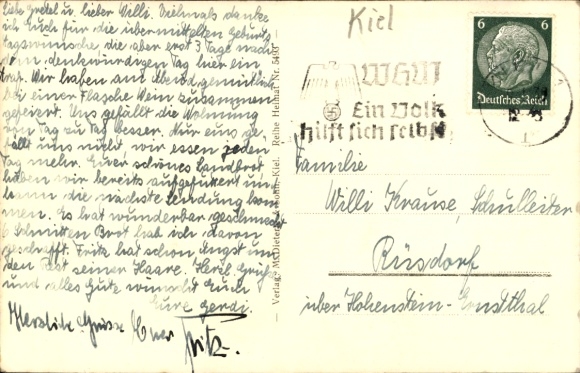 Liebe Gretel u. lieber Willi. Vielmals danke
ich Euch für die übermittelten Geburts
tagswünsche die aber erst 3 Tage nach
dem denkwürdigen Tag hier ein
traf. Wir haben am Abend gemütlich
bei einer Flasche Wein zusammen
gefeiert. Uns gefällt die Wohnung
von Tag zu Tag besser. Nur eins ge
fällt uns nicht wir essen jeden
Tag mehr. Euer schönes Landbrot
haben wir bereits aufgefuttert un
kann die nächste Sendung kom
men. Es hat wunderbar geschmeckt
6 Schnitten Brot hab ich davon
geschafft. Fritz hat schon Angst um
den Rest seiner Haare. Herzl. Grüße
und alles Gute wünscht Euch
Eure Gerdi.
Herzliche Grüsse Euer
Fritz.
Verlag: M. Dieterle, Kiel. Reihe Heimat Nr. 5493
Kiel
6 6
Deutsches Reich
WHW
Ein Volk
hilft sich selbst
Familie
Willi Krause, Schulleiter
Rüsdorf
über Hohenstein-Ernstthal